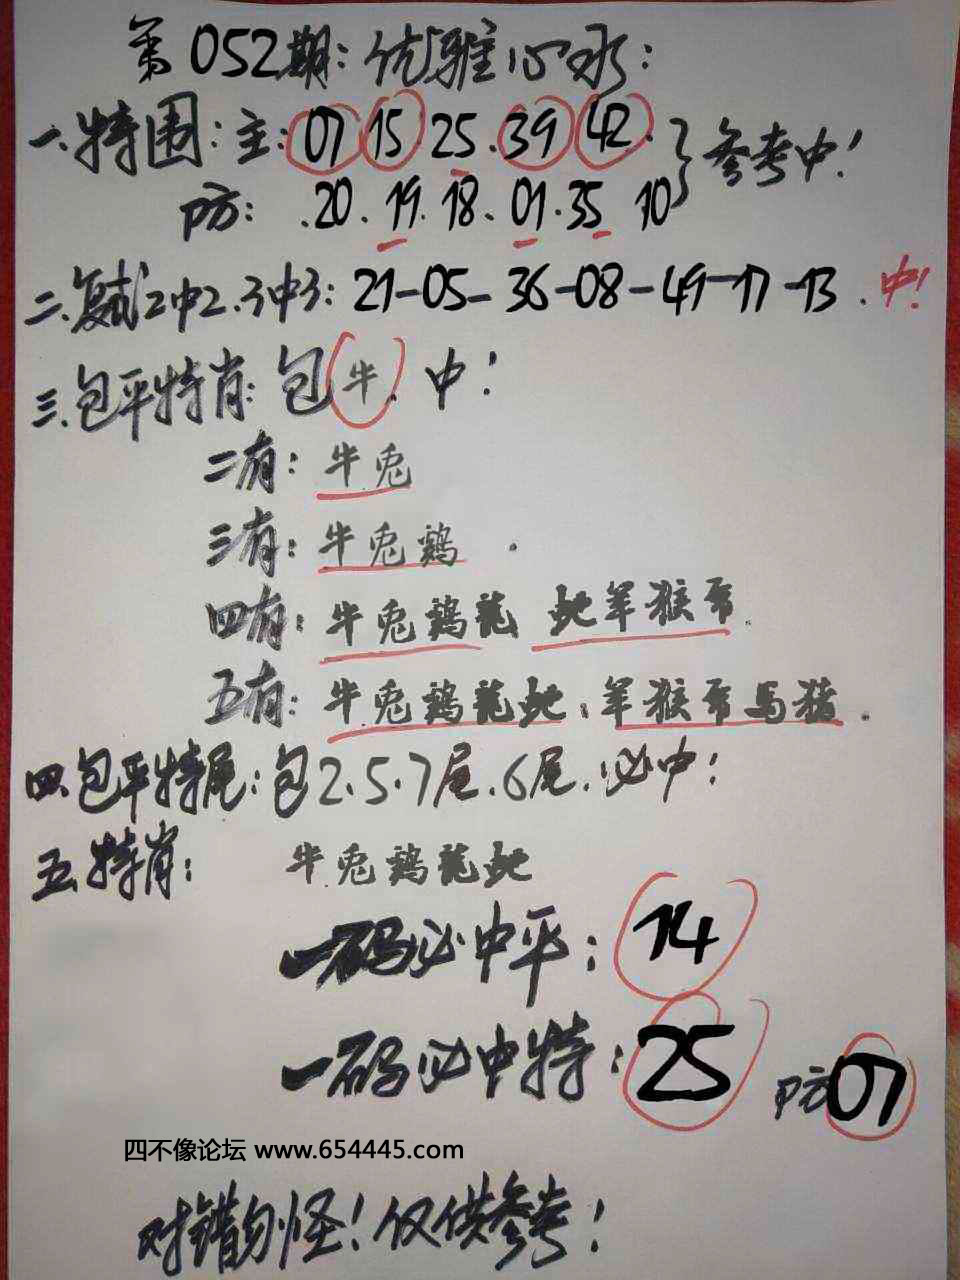 第052期:优雅心水:
一.特围:主:07 15.25.39 42.}参考中!
防: .20.19.18.01.35 10
二.复式2中2.3中3:21-05-36-08-49-17-13.中!
三.包平特肖:包牛.中!
二有:牛兔
三有:牛兔鷄.
四有:牛兔鷄龍 蛇羊猴
五有:牛兔鷄龍蛇:羊猴 馬猪.
四.包平特尾:包2.5.7尾.6尾.必中!
五.特肖: 牛兔鷄龍蛇
一码必中平:14
一码必中特:25 防07
四不像论坛 www.654445.com
对错勿怪!仅供参考!